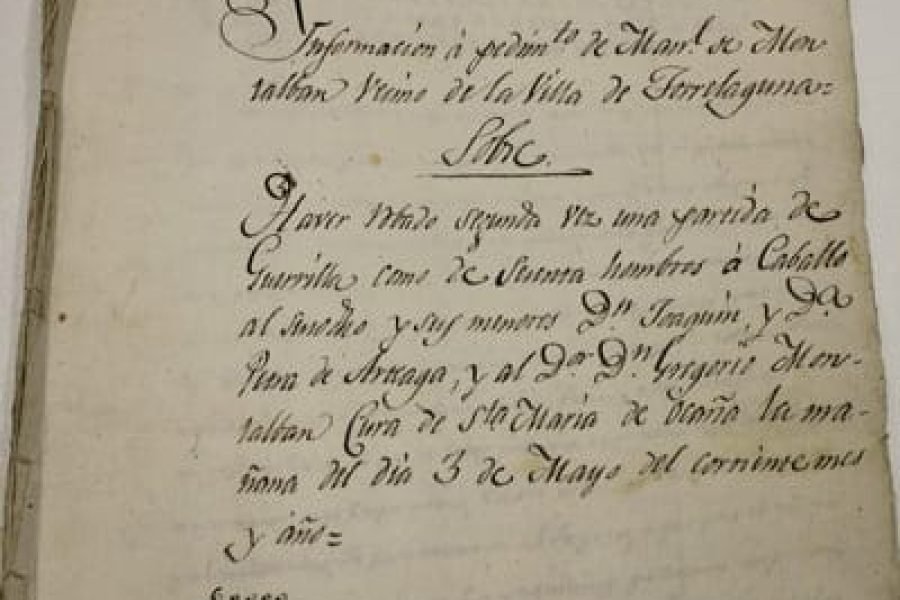 Informacion â pedim.to de Man.l de Mon
talban Vecino de la Villa de Torrelaguna=
Sobre.
Haver robado segunda vez una partida de
Guerrilla como de setenta hombres â Caballo
al susodho y sus menores D.n Joaquin, y D.a
Petra de Arteaga, y al D.or D.n Gregorio Mon-
talban Cura de S.ta Maria de Ocaña la ma-
ñana del dia 3 de Mayo del corriente mes
y año=